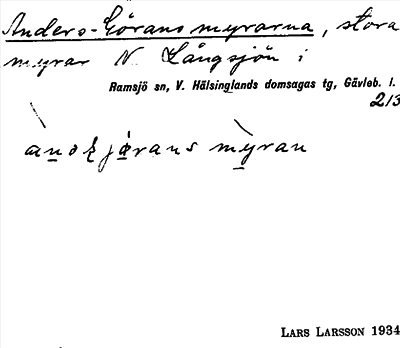 Anders-Görans myrarna, stora
myrar N. Långsjön i
Ramsjö sn, V. Hälsinglands domsagas tg, Gävleb. l.
213
LARS LARSSON 1934